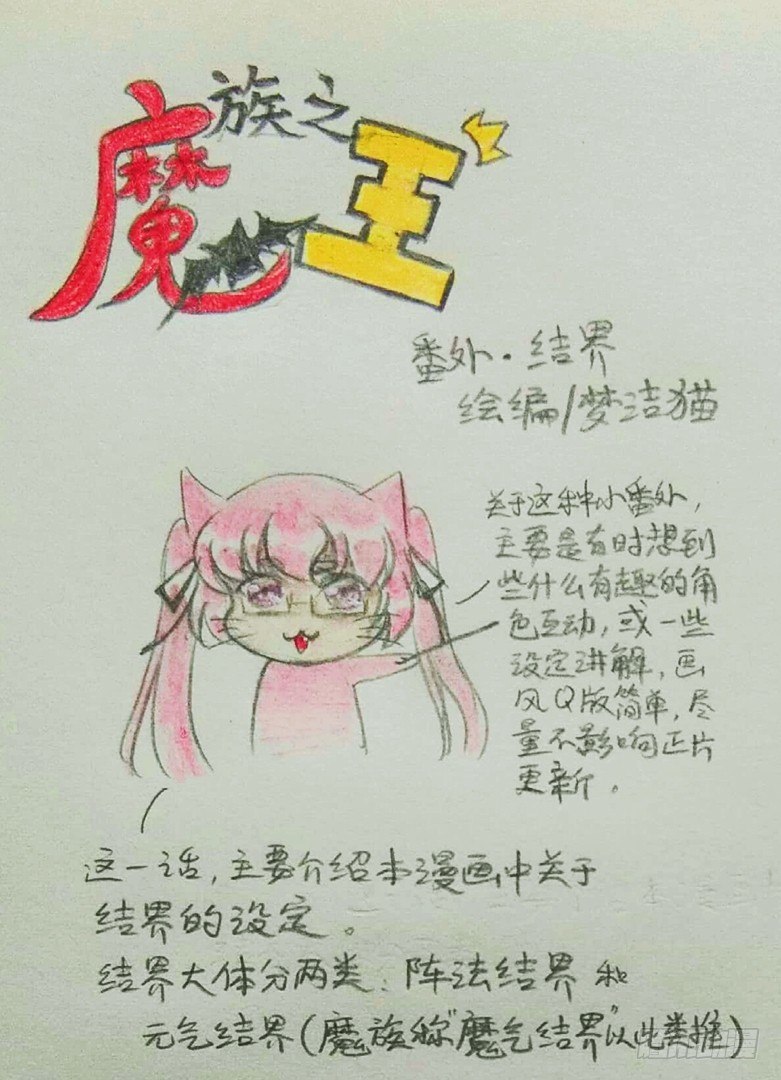 魔族之王
番外·结界
绘编/梦洁猫
关于这种小番外，
主要是有时想到
些什么有趣的角
色互动，或一些
设定讲解，画
风Q版简单，尽
量不影响正片
更新。
这一话，主要介绍本漫画中关于
结界的设定。
结界大体分两类：阵法结界和
元气结界（魔族称"魔气结界"以此类推）